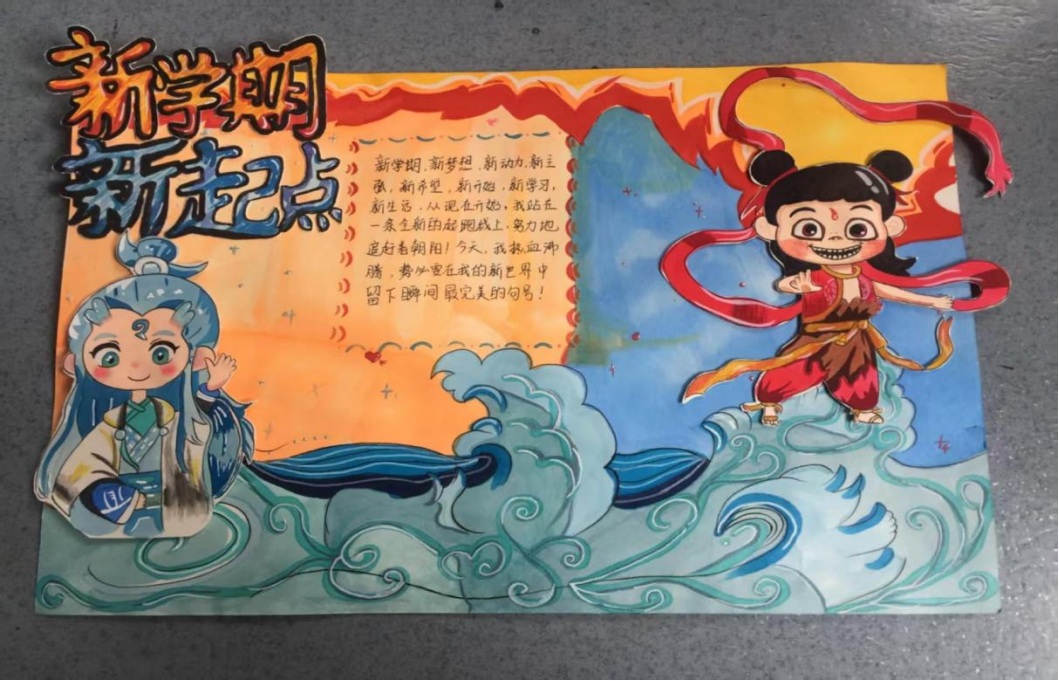 新学期
新起点
新学期.新梦想.新动力.新主
张.新希望.新开始.新学习,
新生活.从现在开始,我站在
一条全新的起跑线上,努力地
追赶着朝阳!今天,我热血沸
腾,势必要在我的新世界中
留下瞬间最完美的句号!